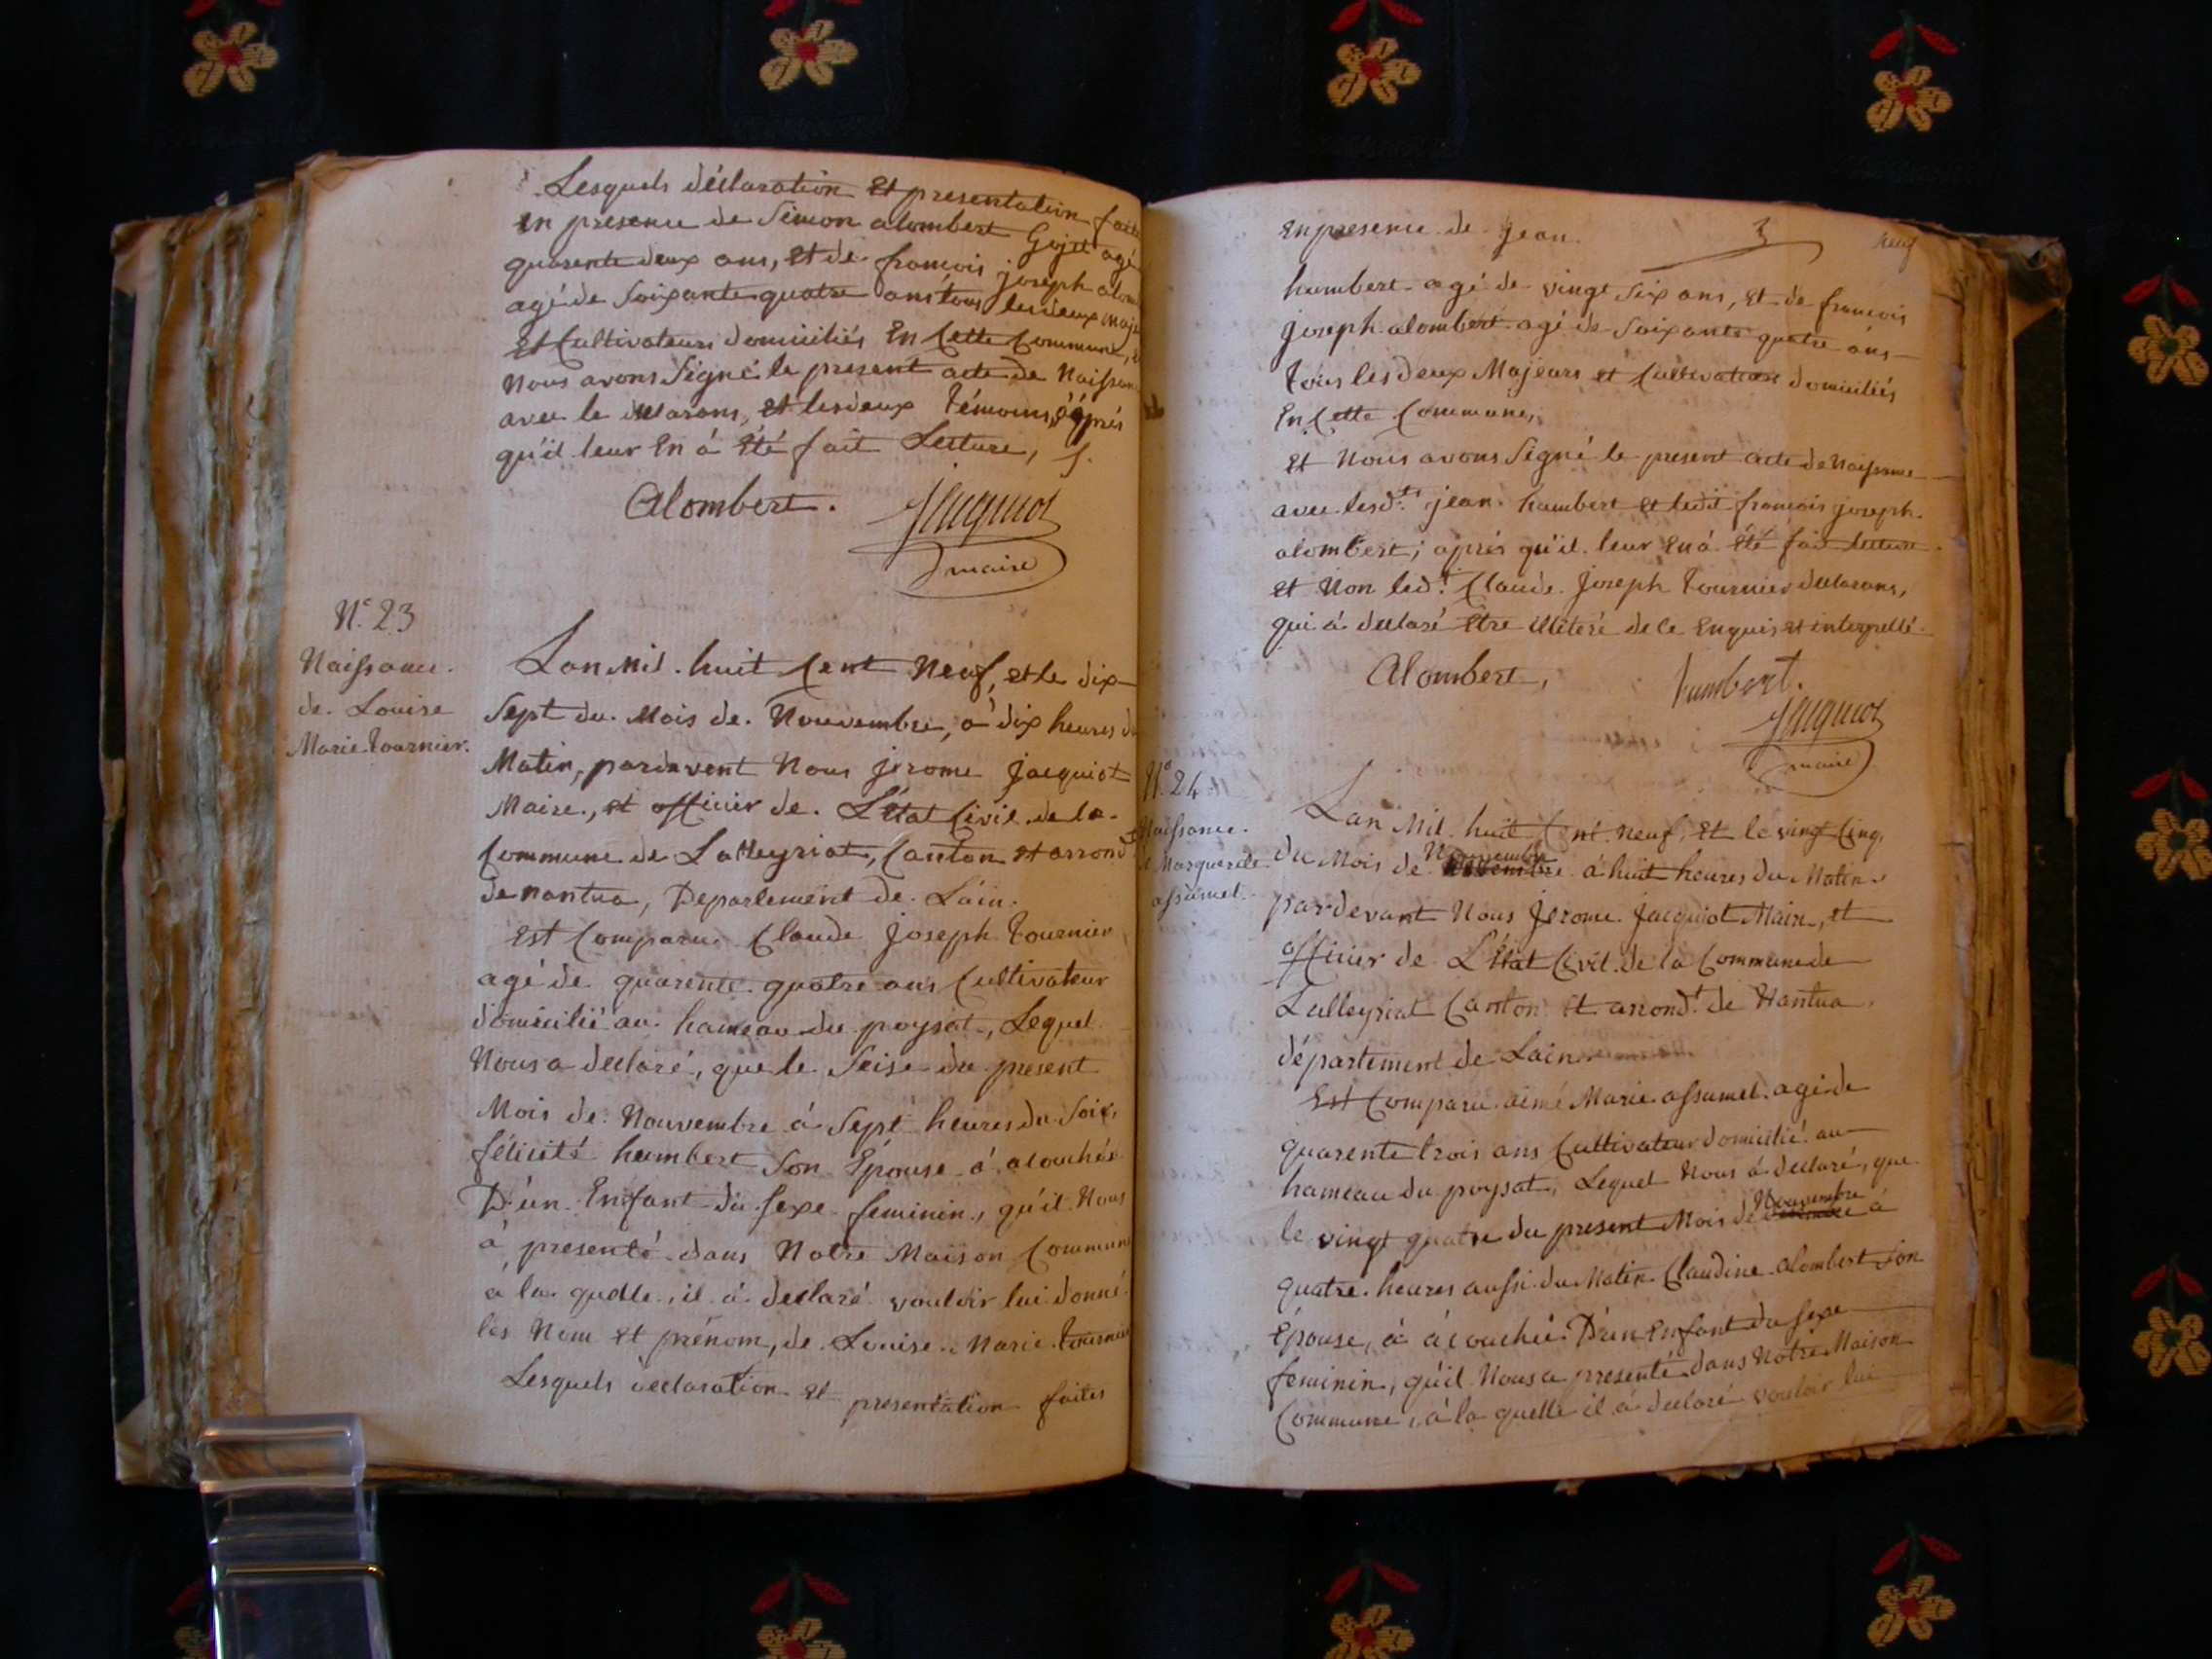 Lesquels déclaration et presentation faites
en presence de Simon alombert Gojet agé
quarente deux ans, et de francois joseph alom
agé de Soixante quatre ans tous les deux maje
Et Cultivateurs domiciliés En Cette Commune,
Nous avons Signé le present acte de Naissan
avec le declarans, et les deux témoins, après
qu'il leur En á Eté fait Lecture, /.
Alombert. Jacquiot
maire
N.º 23
Naissance.
de Louise
Marie tournier.
Lan Mil. huit Cent Neuf, et le dix
Sept du. Mois de. Nouvembre, á dix heures du
Matin, pardevent Nous jerome jacquiot
Maire, et officier de. L'état Civil de la.
Commune de Lalleyriat, Canton et arrond.t
de nantua, Departement de. Lain.
Est Comparu Claude Joseph tournier
agé de quarente quatre ans Cultivateur
domicilié au hameau du poysat, Lequel
Nous a declaré, que le Seise du present
Mois de Nouvembre á Sept heures du Soir,
félicité humbert Son Épouse á acouchée
D'un Enfant du Sexe feminin, qu'il Nous
á presenté dans Notre Maison Commune
á la quelle, il á declaré vouloir lui donné
les Nom et prénom, de Louise Marie tournier
Lesquels declaration et presentation faites
En presence de Jean 3
humbert agé de vingt Six ans, Et de francois
joseph alombert agé de Soixante quatre ans
tous les deux Majeurs et Cultivateurs domiciliés
En Cette Commune,
Et Nous avons Signé le present acte de Naissance
avec lesd.ts jean humbert et ledit francois joseph
alombert; aprés qu'il leur En á Eté fait lecture
et Non led.t Claude Joseph tournier declarans,
qui á declaré Etre illiteré de ce Enquis et interpellé
Alombert, humbert.
Jacquiot
maire
N.º 24
Naissance.
assumel.
Lan Mil. huit Cent neuf, Et le vingt Cinq
du Mois de Nouvembre á huit heures du Matin
pardevant Nous Jerome. Jacquiot Maire, et
officier de L'état Civil de la Commune de
Lalleyriat Canton Et arrond.t de Nantua
département de Lain
Est Comparu aimé Marie assumel agé de
quarente trois ans Cultivateur domicilié au
hameau du poysat, Lequel Nous á declaré, que
le vingt quatre du present Mois de Nouvembre á
quatre heures aussi du Matin Claudine alombert Son
Épouse, á acouchée D'un Enfant du Sexe
feminin, qu'il Nous a presenté dans Notre Maison
Commune, á la quelle il á declaré vouloir lui